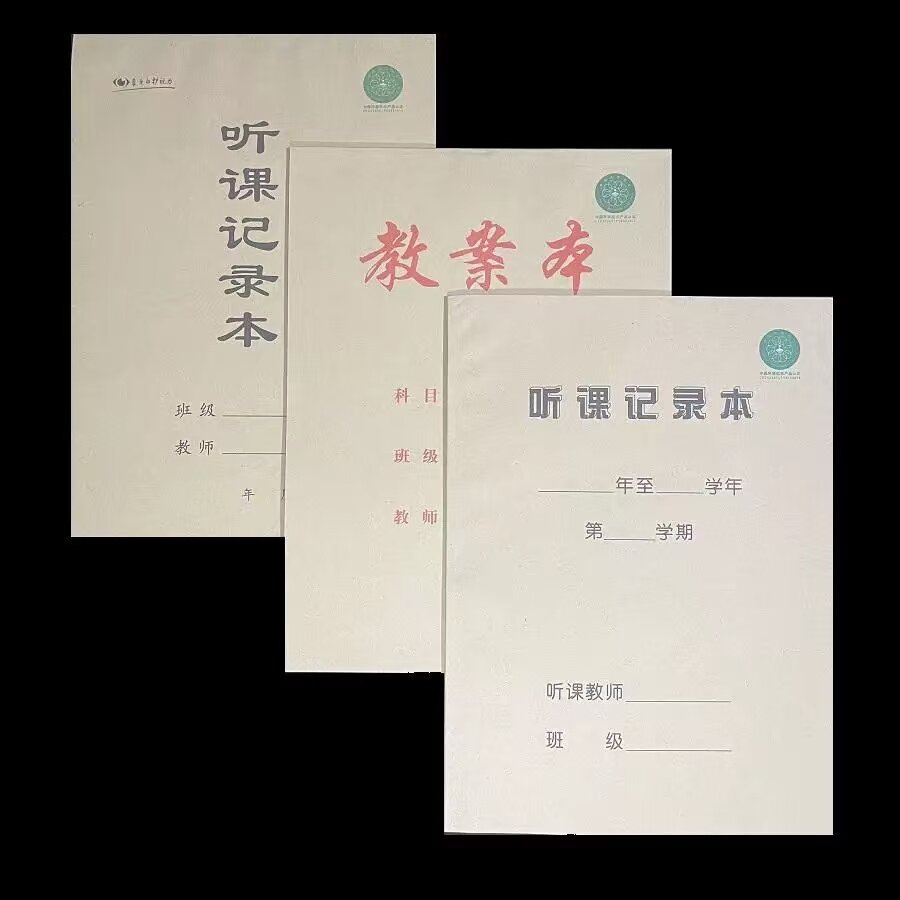 听课记录本
班级
教师
年
教案本
科目
班级
教师
听课记录本
年至 学年
第 学期
听课教师
班 级